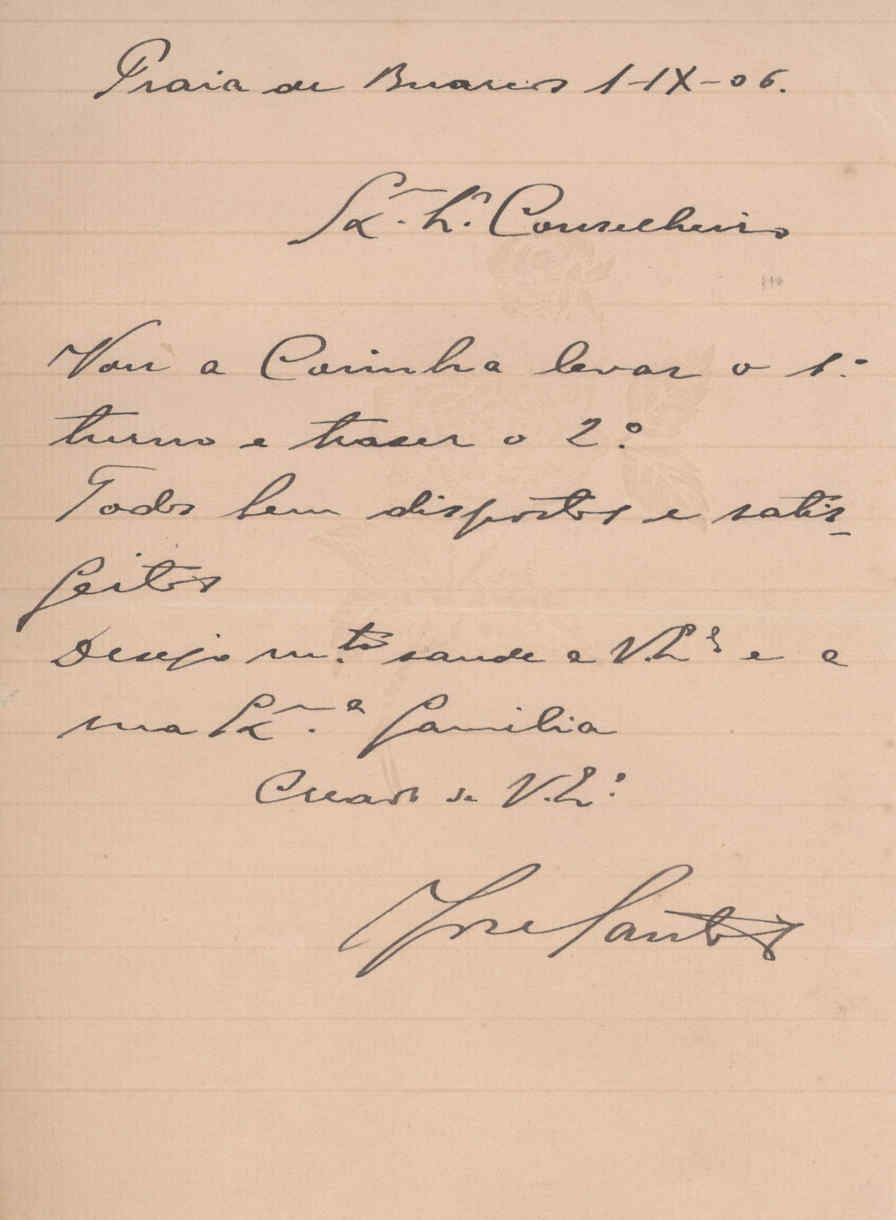 Praia de Buarcos 1-IX-06.
Ex.mo Sr. Conselheiro
Vou a Cerinha levar o 1.º
turno e traser o 2.º
Todos bem dispostos e satis-
feitos
Desejo m.ta saude a V. Ex.ª e a
sua Ex.ma familia
Creado de V. Ex.ª
José Santos